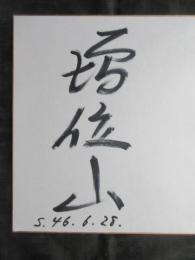 増位山
S. 46. 6. 28.